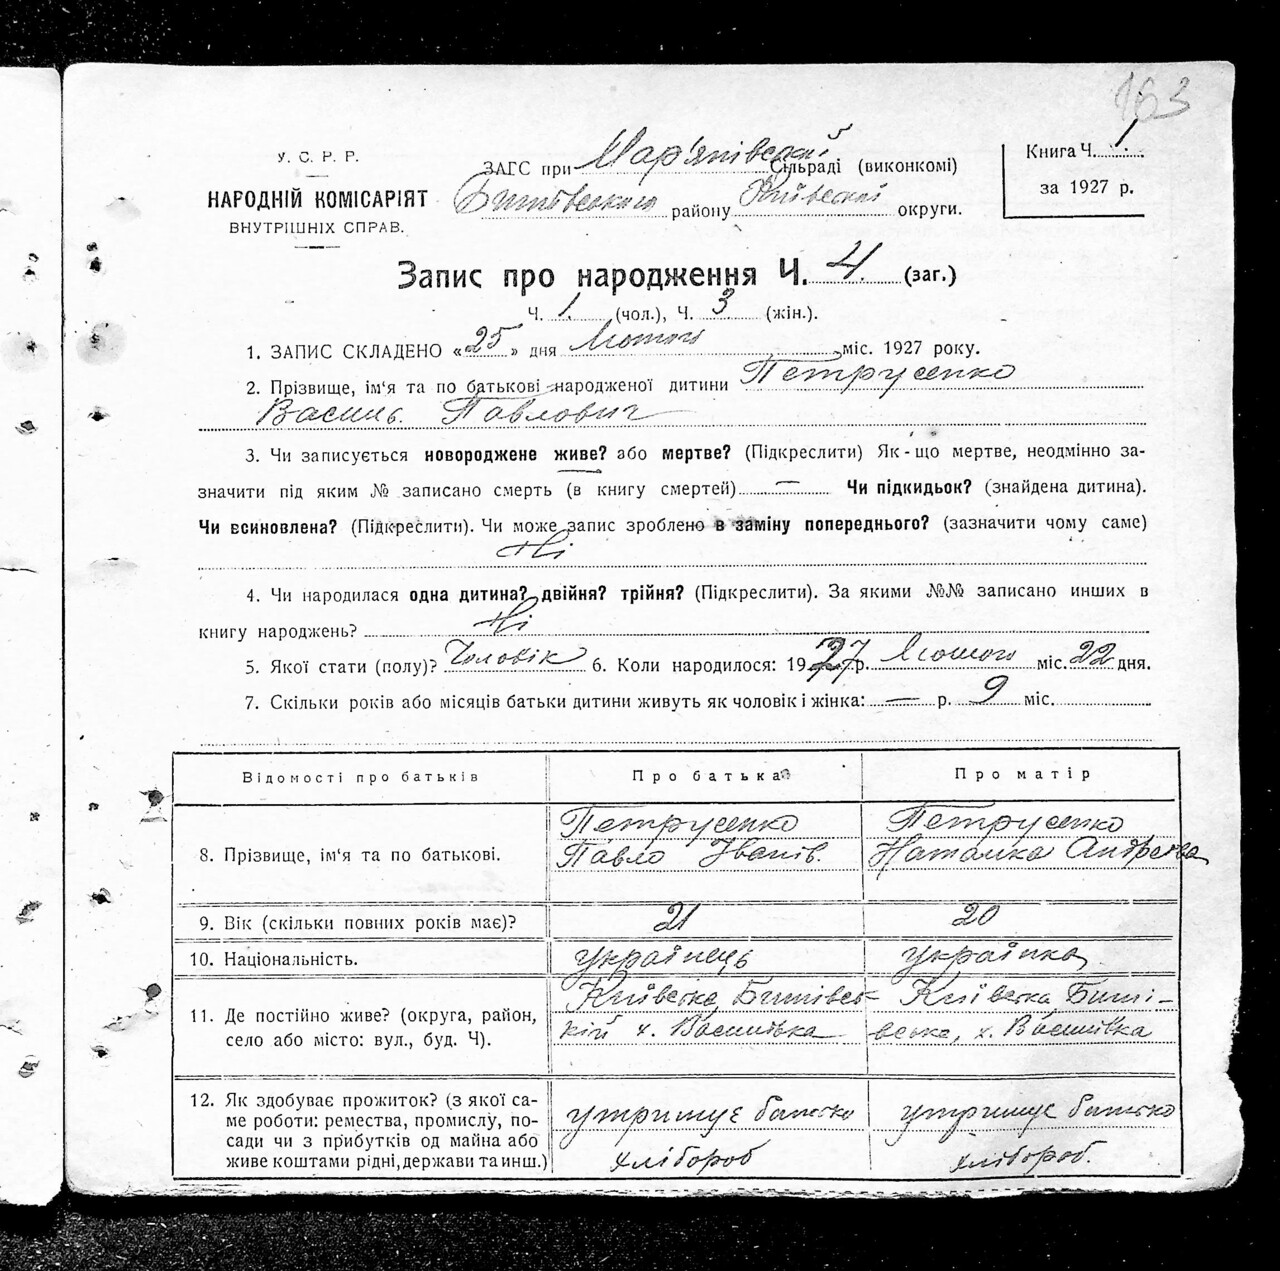 163
У. С. Р. Р.
НАРОДНІЙ КОМІСАРІЯТ
ВНУТРІШНІХ СПРАВ.
ЗАГС при Мар'янівській Сільраді (виконкомі)
Бишівського району Київської округи.
Книга Ч. 1.
за 1927 р.
Запис про народження Ч. 4 (заг.)
Ч. 1. (чол.), Ч. 3 (жін.).
1. ЗАПИС СКЛАДЕНО «25» дня Лютого міс. 1927 року.
2. Прізвище, ім'я та по батькові народженої дитини Петрусенко
Василь Павлович
3. Чи записується новороджене живе? або мертве? (Підкреслити) Як-що мертве, неодмінно за-
значити під яким № записано смерть (в книгу смертей) — Чи підкидьок? (знайдена дитина).
Чи всиновлена? (Підкреслити). Чи може запис зроблено в заміну попереднього? (зазначити чому саме)
Ні
4. Чи народилася одна дитина? двійня? трійня? (Підкреслити). За якими №№ записано инших в
книгу народжень? Ні
5. Якої стати (полу)? Чоловік 6. Коли народилося: 1927 р. Лютого міс. 22 дня.
7. Скільки років або місяців батьки дитини живуть як чоловік і жінка: — р. 9 міс.
Відомості про батьків Про батька Про матір
8. Прізвище, ім'я та по батькові.
Петрусенко
Павло Іванів.
Петрусенко
Наталка Андрєєва
9. Вік (скільки повних років має)? 21 20
10. Національність. українець українка
11. Де постійно живе? (округа, район,
село або місто: вул., буд. Ч).
Київська, Бишівсь-
кій х. Василівка
Київська Биші-
вська, х. Василівка
12. Як здобуває прожиток? (з якої са-
ме роботи: ремества, промислу, по-
сади чи з прибутків од майна або
живе коштами рідні, держави та инш.)
утримує батько
хлібороб
утримує батько
хлібороб.